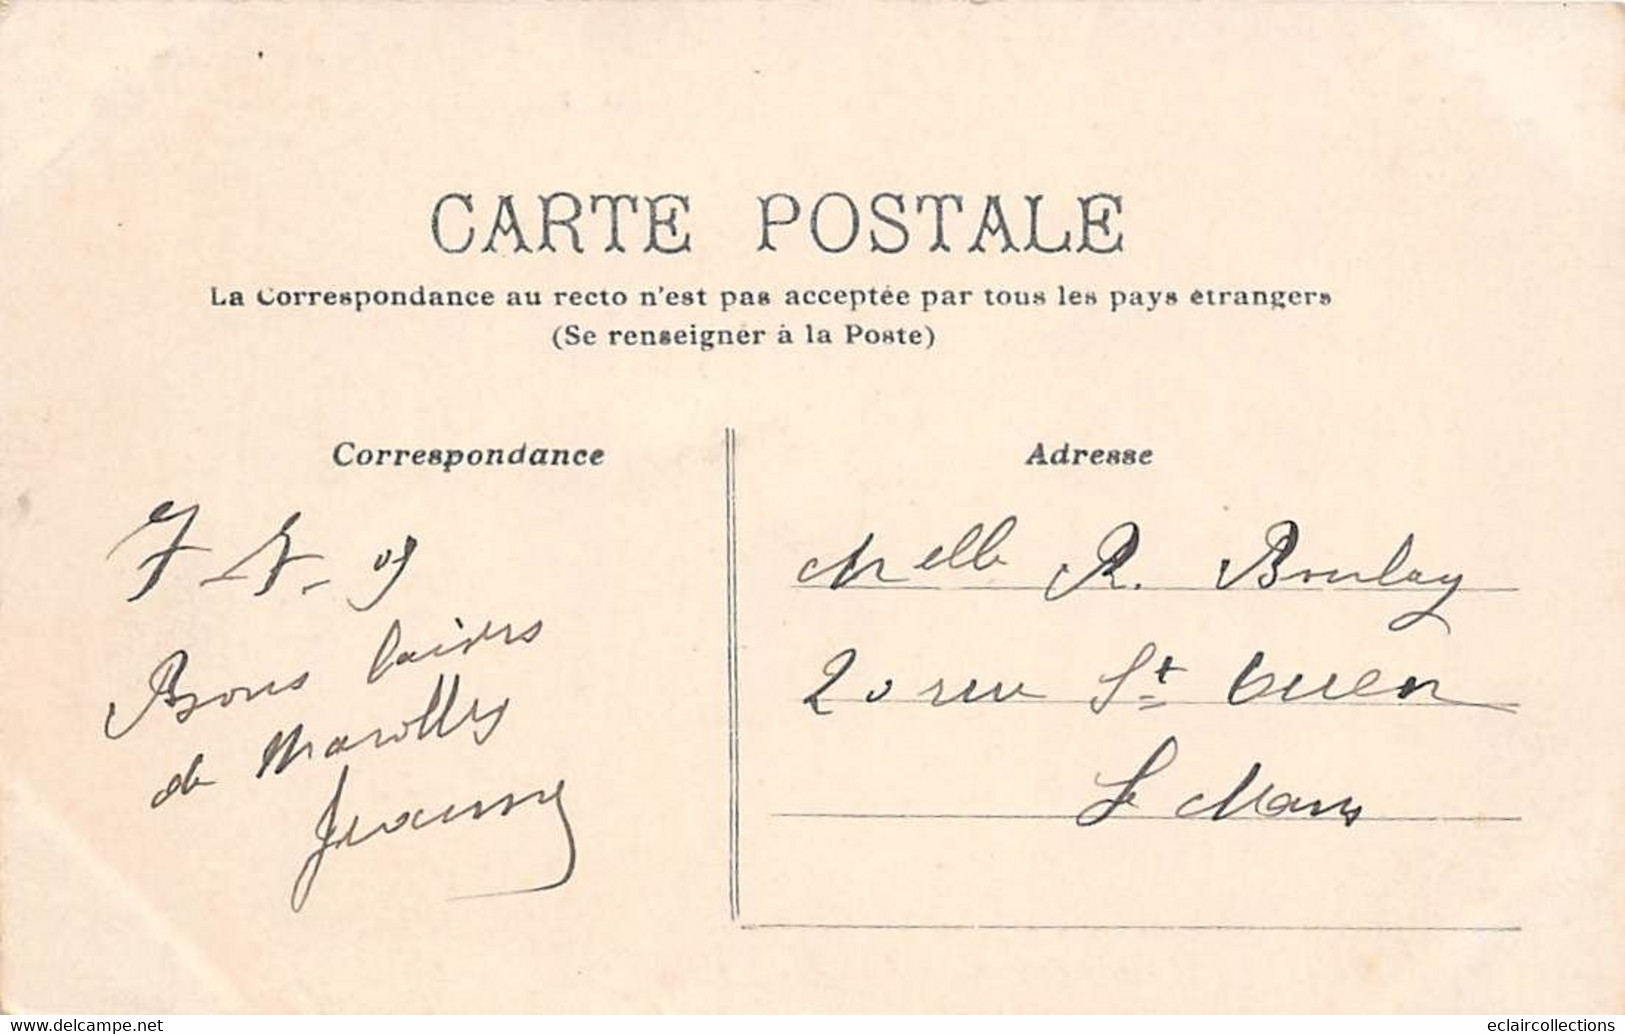 CARTE POSTALE
La Correspondance au recto n'est pas acceptée par tous les pays étrangers
(Se renseigner à la Poste)
Correspondance
7 - 05
Bons baisers
de Marolles
Jeanne
Adresse
Melle R. Boulay
20 rue St Ouen
Le Mans
www.delcampe.net
eclaircollections